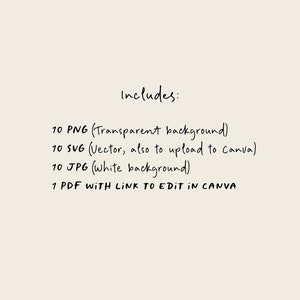 Includes:
10 PNG (Transparent background)
10 SVG (Vector, also to upload to Canva)
10 JPG (White background)
1 PDF WITH LINK TO EDIT IN CANVA